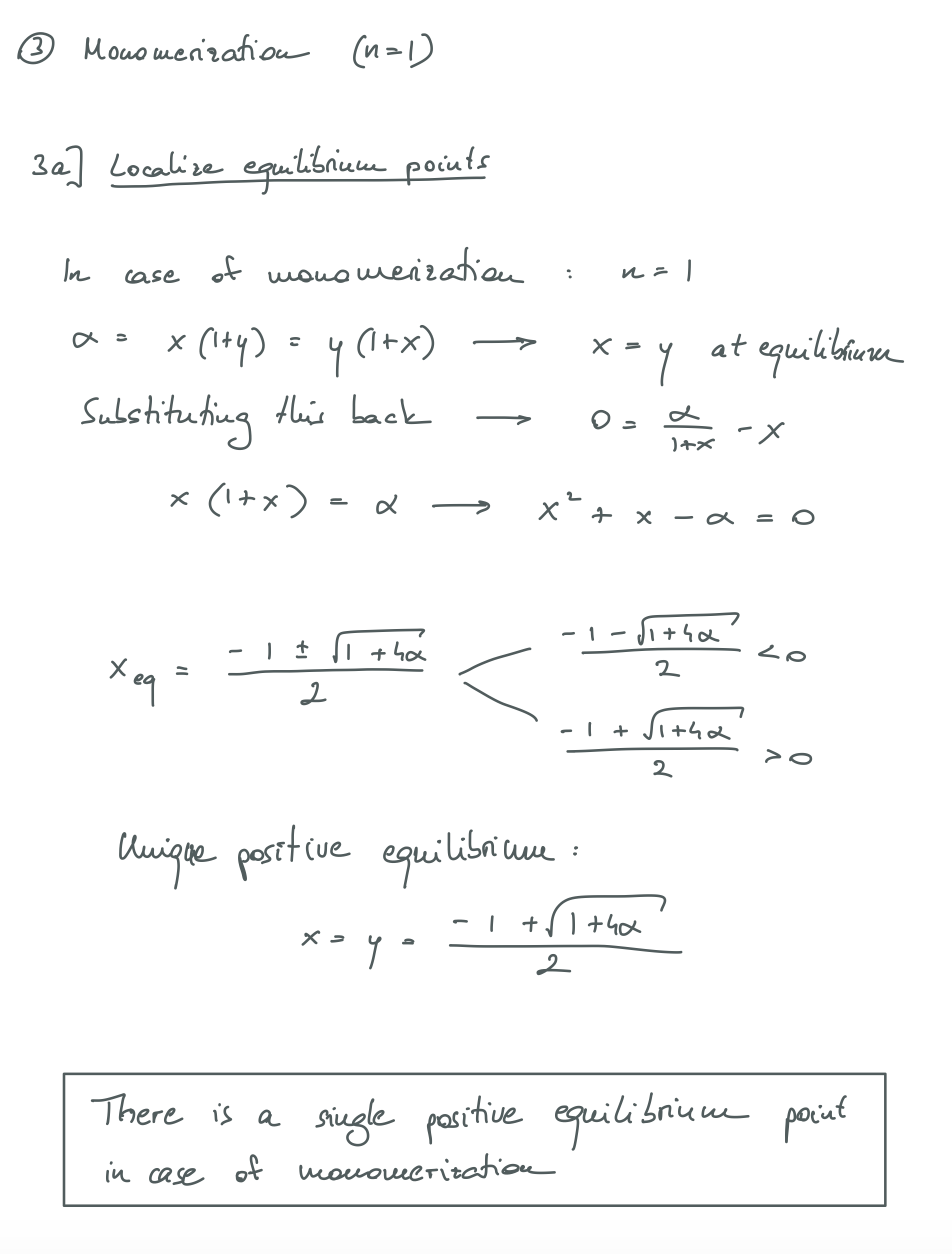 ③ Monomerization (n=1)
3a] Localize equilibrium points
In case of monomerization : n = 1
α = x (1+y) = y (1+x) ⟶ x = y at equilibrium
Substituting this back ⟶ 0 = α/(1+x) - x
x (1+x) = α ⟶ x² + x - α = 0
x_eq = (-1 ± √(1+4α))/2
(-1 - √(1+4α))/2 < 0
(-1 + √(1+4α))/2 > 0
Unique positive equilibrium :
x = y = (-1 + √(1+4α))/2
There is a single positive equilibrium point
in case of monomerization